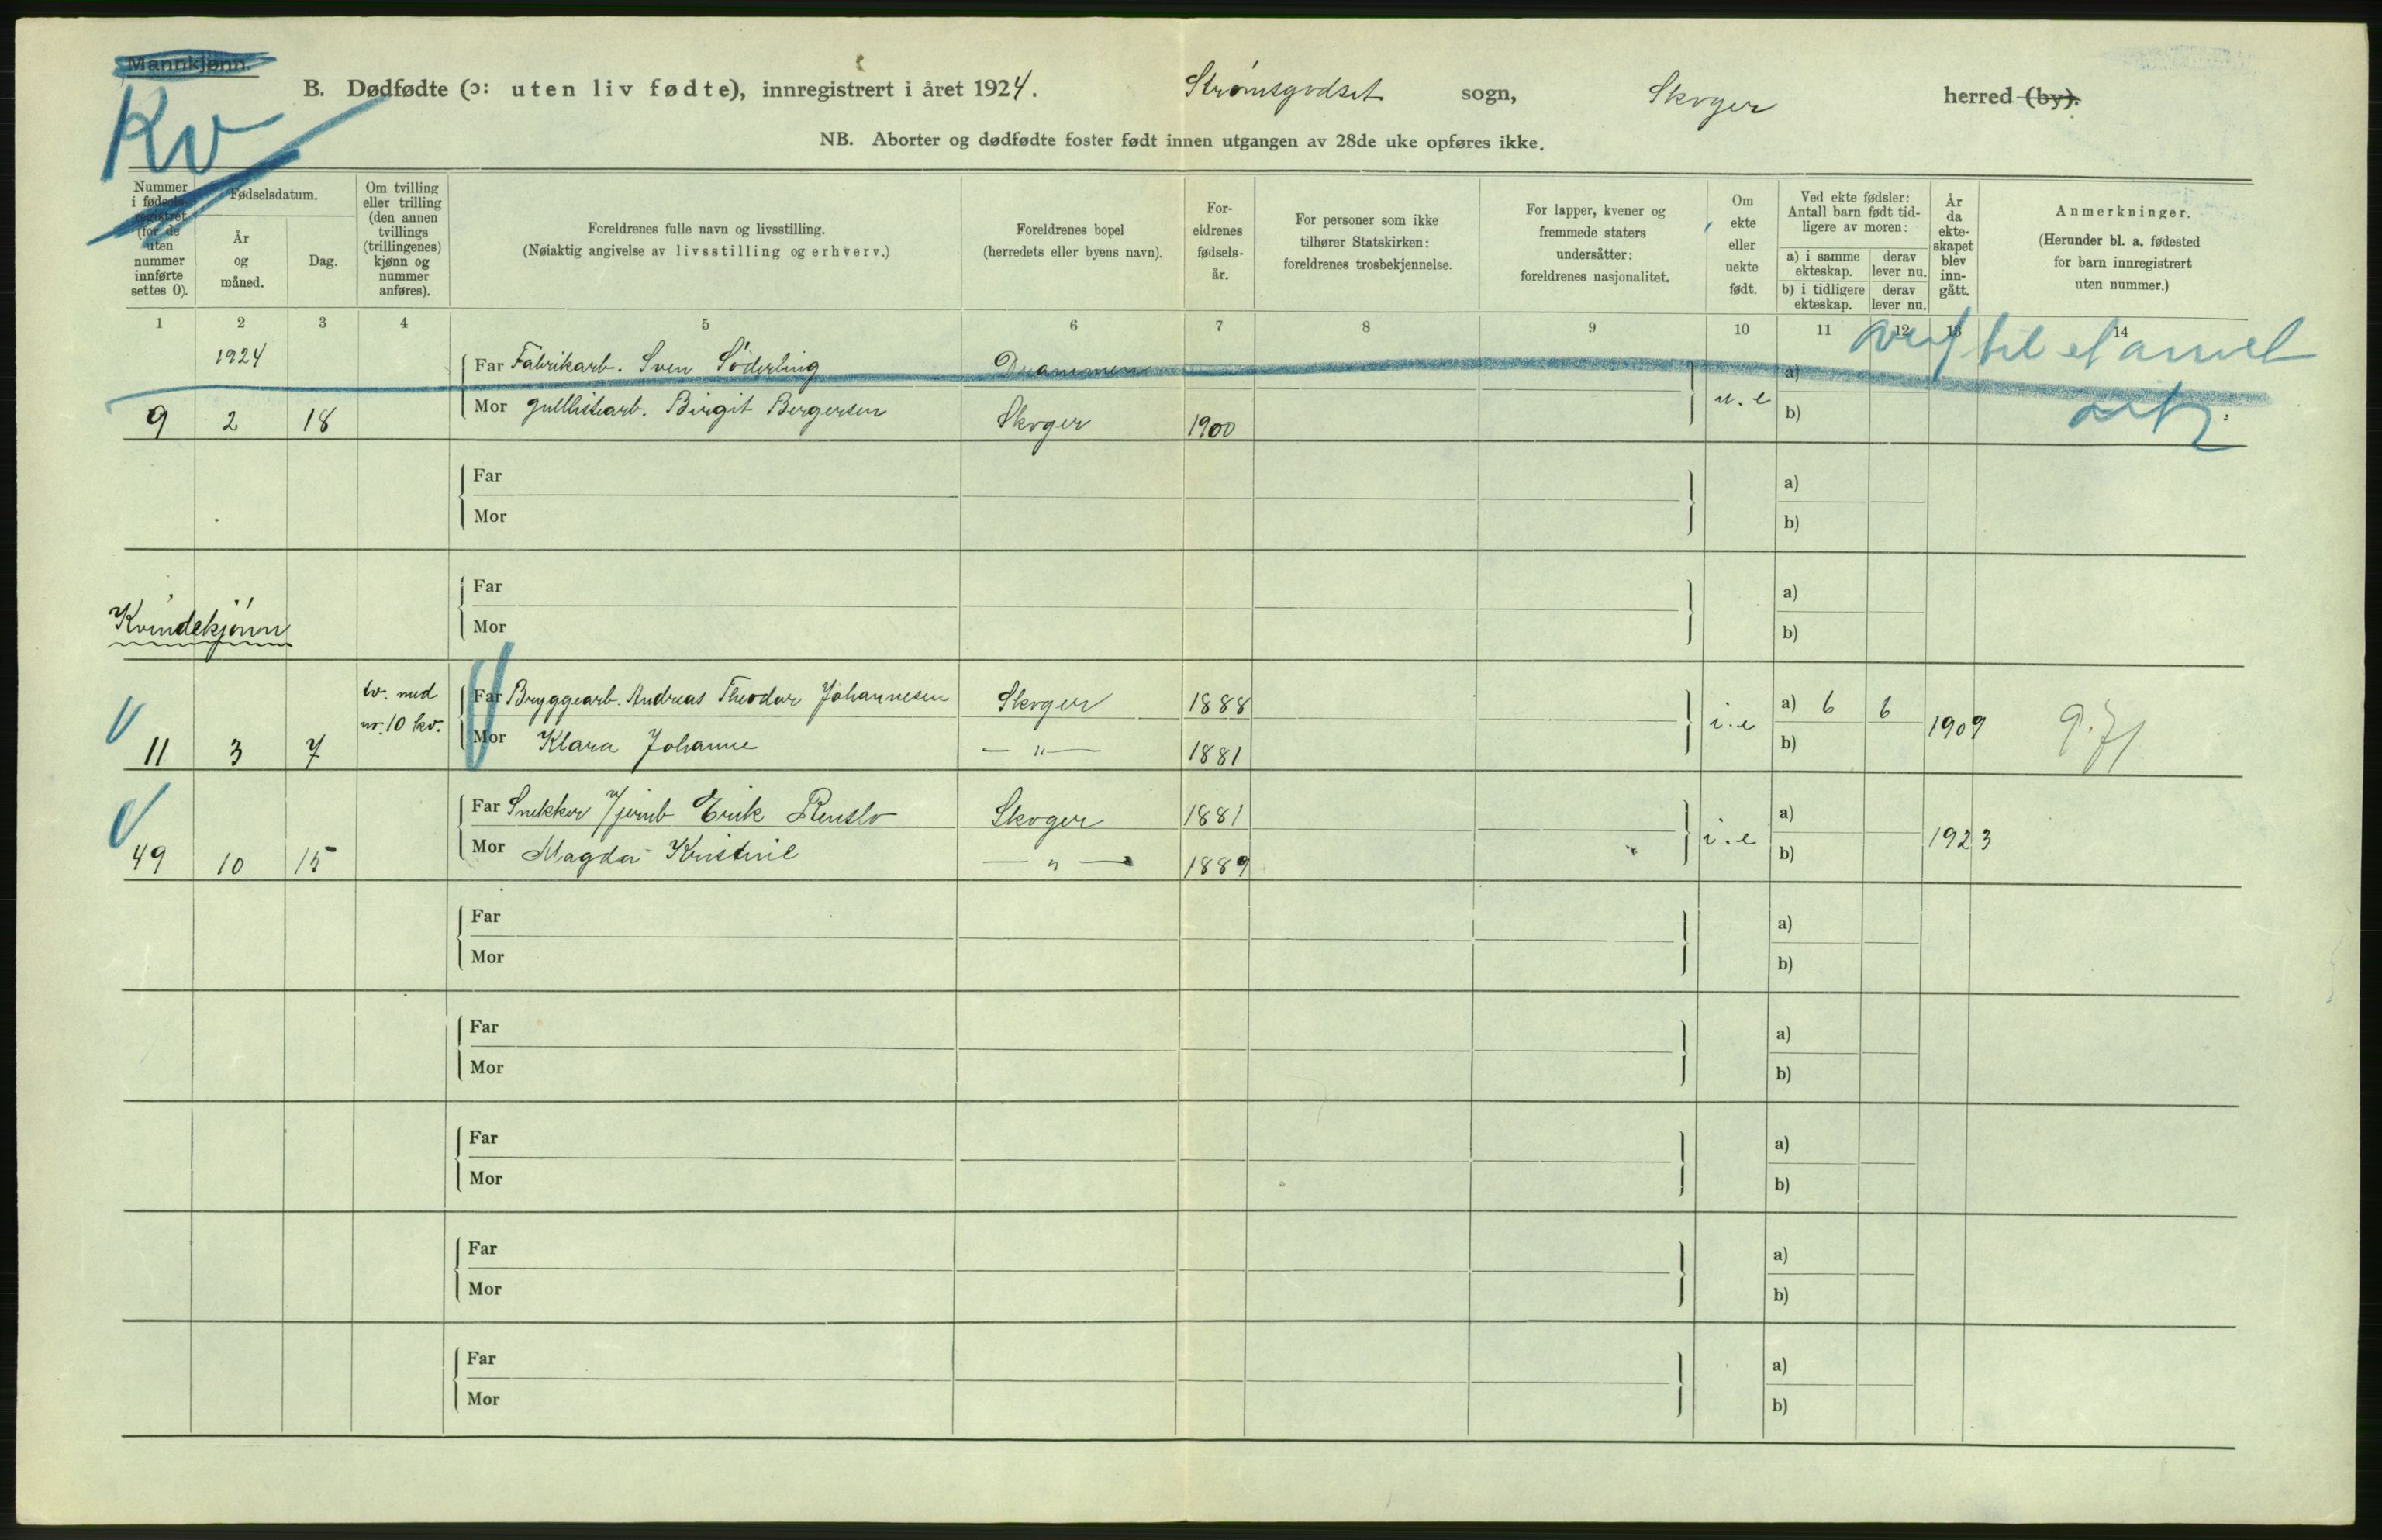 Mannkjønn.
Kv
B. Dødfødte (ɔ: uten liv fødte), innregistrert i året 1924. Strømsgodset sogn, Skoger herred (by).
NB. Aborter og dødfødte foster født innen utgangen av 28de uke opføres ikke.
Nummer i fødselsregistret (for de uten nummer innførte settes 0).
Fødselsdatum.
År og måned.
Dag.
Om tvilling eller trilling (den annen tvillings (trillingenes) kjønn og nummer anføres).
Foreldrenes fulle navn og livsstilling.
(Nøiaktig angivelse av livsstilling og erhverv.)
Foreldrenes bopel
(herredets eller byens navn).
Foreldrenes fødselsår.
For personer som ikke tilhører Statskirken: foreldrenes trosbekjennelse.
For lapper, kvener og fremmede staters undersåtter: foreldrenes nasjonalitet.
Om ekte eller uekte født.
Ved ekte fødsler: Antall barn født tidligere av moren:
a) i samme ekteskap. derav lever nu.
b) i tidligere ekteskap. derav lever nu.
År da ekteskapet blev inngått.
Anmerkninger.
(Herunder bl. a. fødested for barn innregistrert uten nummer.)
1 2 3 4 5 6 7 8 9 10 11 12 13 14
til et annet
1924 Far Fabrikarb. Sven Söderling Drammen a)
9 2 18 Mor gullistearb. Birgit Bergersen Skoger 1900 u.e b)
Far a)
Mor b)
Far a)
Kvindekjønn Mor b)
tv. med Far Bryggearb. Andreas Theodor Johannesen Skoger 1888 i.e a) 6 6 1909
nr. 10 kv.
11 3 7 Mor Klara Johanne — " — 1881 b)
Far Snekker Erik Skoger 1881 i.e a) 1923
49 10 15 Mor Magda — " — 1889 b)
Far a)
Mor b)
Far a)
Mor b)
Far a)
Mor b)
Far a)
Mor b)
Far a)
Mor b)